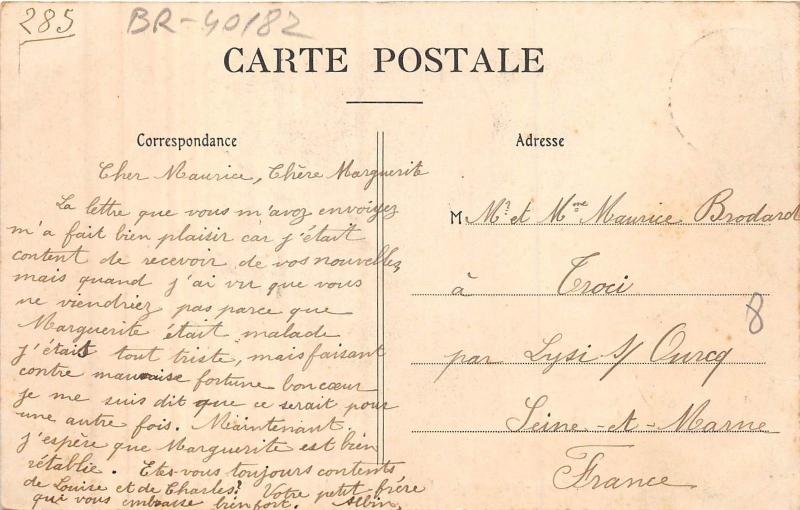 285
BR-40182
CARTE POSTALE
Correspondance
Cher Maurice, Chère Marguerite
La lettre que vous m'avez envoyez
m'a fait bien plaisir car j'était
content de recevoir de vos nouvelles
mais quand j'ai vu que vous
ne viendriez pas parce que
Marguerite était malade
j'étais tout triste, mais faisant
contre mauvaise fortune bon cœur
je me suis dit que ce serait pour
une autre fois. Maintenant
j'espère que Marguerite est bien
rétablie. Etes-vous toujours contents
de Louise et de Charles? Votre petit frère
qui vous embrasse bien fort. Albin
Adresse
M Mr et Mme Maurice Brodard
à Troci
par Lysi s/ Ourcq
Seine-et-Marne
France
8